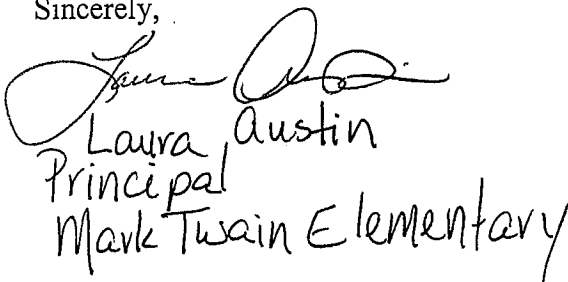 Sincerely,
Laura Austin
Laura Austin
Principal
Mark Twain Elementary